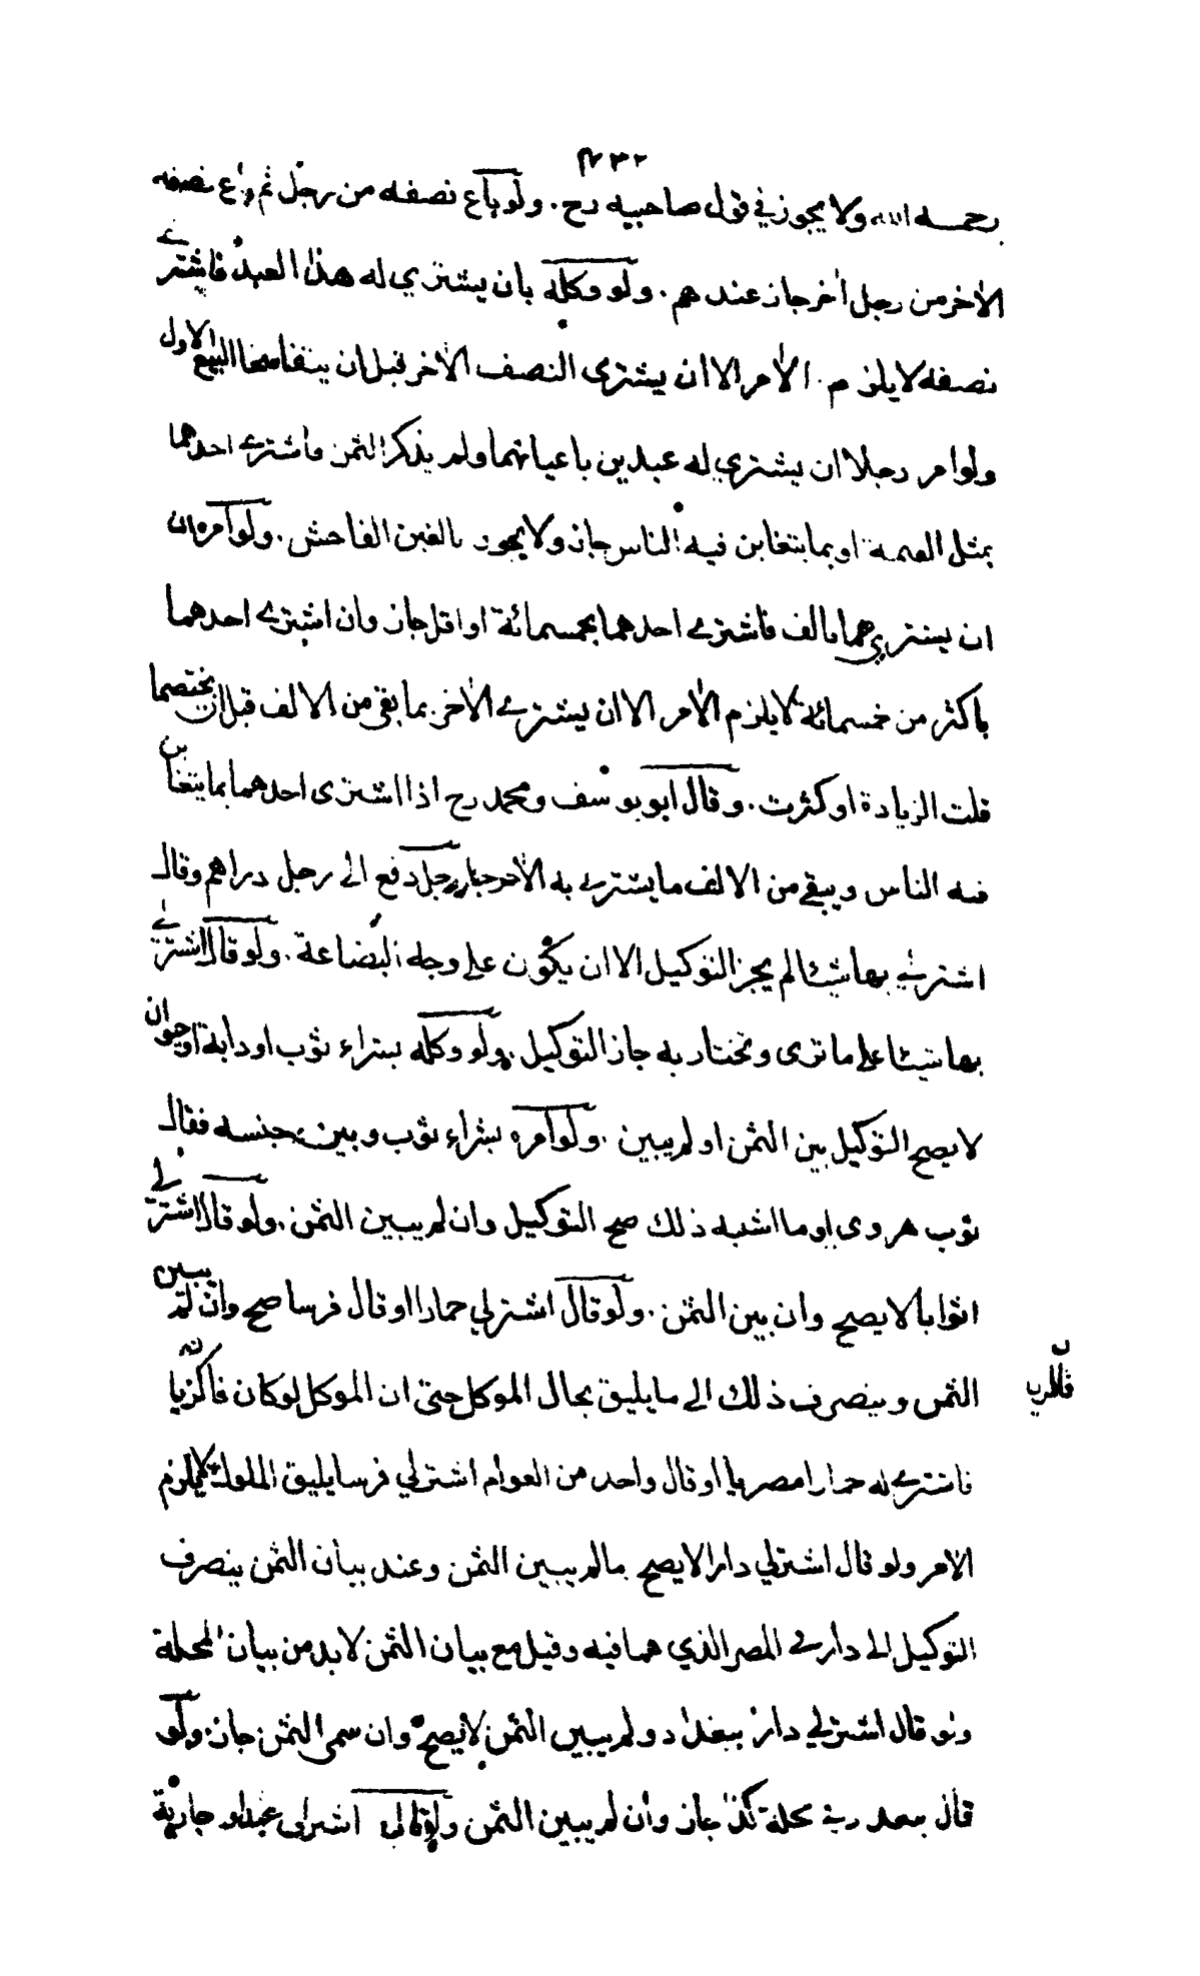 ٢٣٢
رحمه الله ولا يجوز في قول صاحبيه رح . ولو باع نصفه من رجل ثم باع نصفه
الاخر من رجل اخر جاز عندهم . ولو وكله بان يشتري له هذا العبد فاشترى
نصفه لا يلزم الآمر الا ان يشترى النصف الآخر قبل ان يتفاسخا البيع الاول
ولو امر رجلا ان يشتري له عبدين باعيانهما ولم يذكر الثمن فاشترى احدهما
بمثل القيمة او بما يتغابن فيه الناس جاز ولا يجوز بالغبن الفاحش . ولو امره ان
ان يشتريهما بالف فاشترى احدهما بخمسمائة او اقل جاز وان اشترى احدهما
باكثر من خمسمائة لا يلزم الآمر الا ان يشترى الآخر بما بقى من الالف قبل ان يختصما
قلت الزيادة او كثرت . وقال ابو يوسف ومحمد رح اذا اشترى احدهما بما يتغابن
فيه الناس ويبقى من الالف ما يشترى به الآخر جاز رجل دفع الى رجل دراهم وقال
اشتر لي بها شيئا لم يجز التوكيل الا ان يكون على وجه البضاعة . ولو قال اشتر لي
بها شيئا على ما ترى وتختار به جاز التوكيل . ولو وكله بشراء ثوب او دابة او حيوان
لا يصح التوكيل بين الثمن او لم يبين . ولو امره بشراء ثوب وبين جنسه فقال
ثوب هروى او ما اشبه ذلك صح التوكيل وان لم يبين الثمن . ولو قال اشتر لي
اثوابا لا يصح وان بين الثمن . ولو قال اشتر لي حمارا او قال فرسا صح وان لم يبين
الثمن وينصرف ذلك الى ما يليق بحال الموكل حتى ان الموكل لو كان
فاشترى له حمارا مصريا او قال واحد من العوام اشتر لي فرسا يليق الملوك لا يلزم
الآمر ولو قال اشتر لي دارا لا يصح ما لم يبين الثمن وعند بيان الثمن ينصرف
التوكيل الى دار في المصر الذي هما فيه وقيل مع بيان الثمن لا بد من بيان المحلة
ولو قال اشتر لي دارا ببغداد ولم يبين الثمن لا يصح وان سمى الثمن جاز . ولو
قال ببغداد في محلة كذا جاز وان لم يبين الثمن ولو قال اشتر لي عبدا او جارية